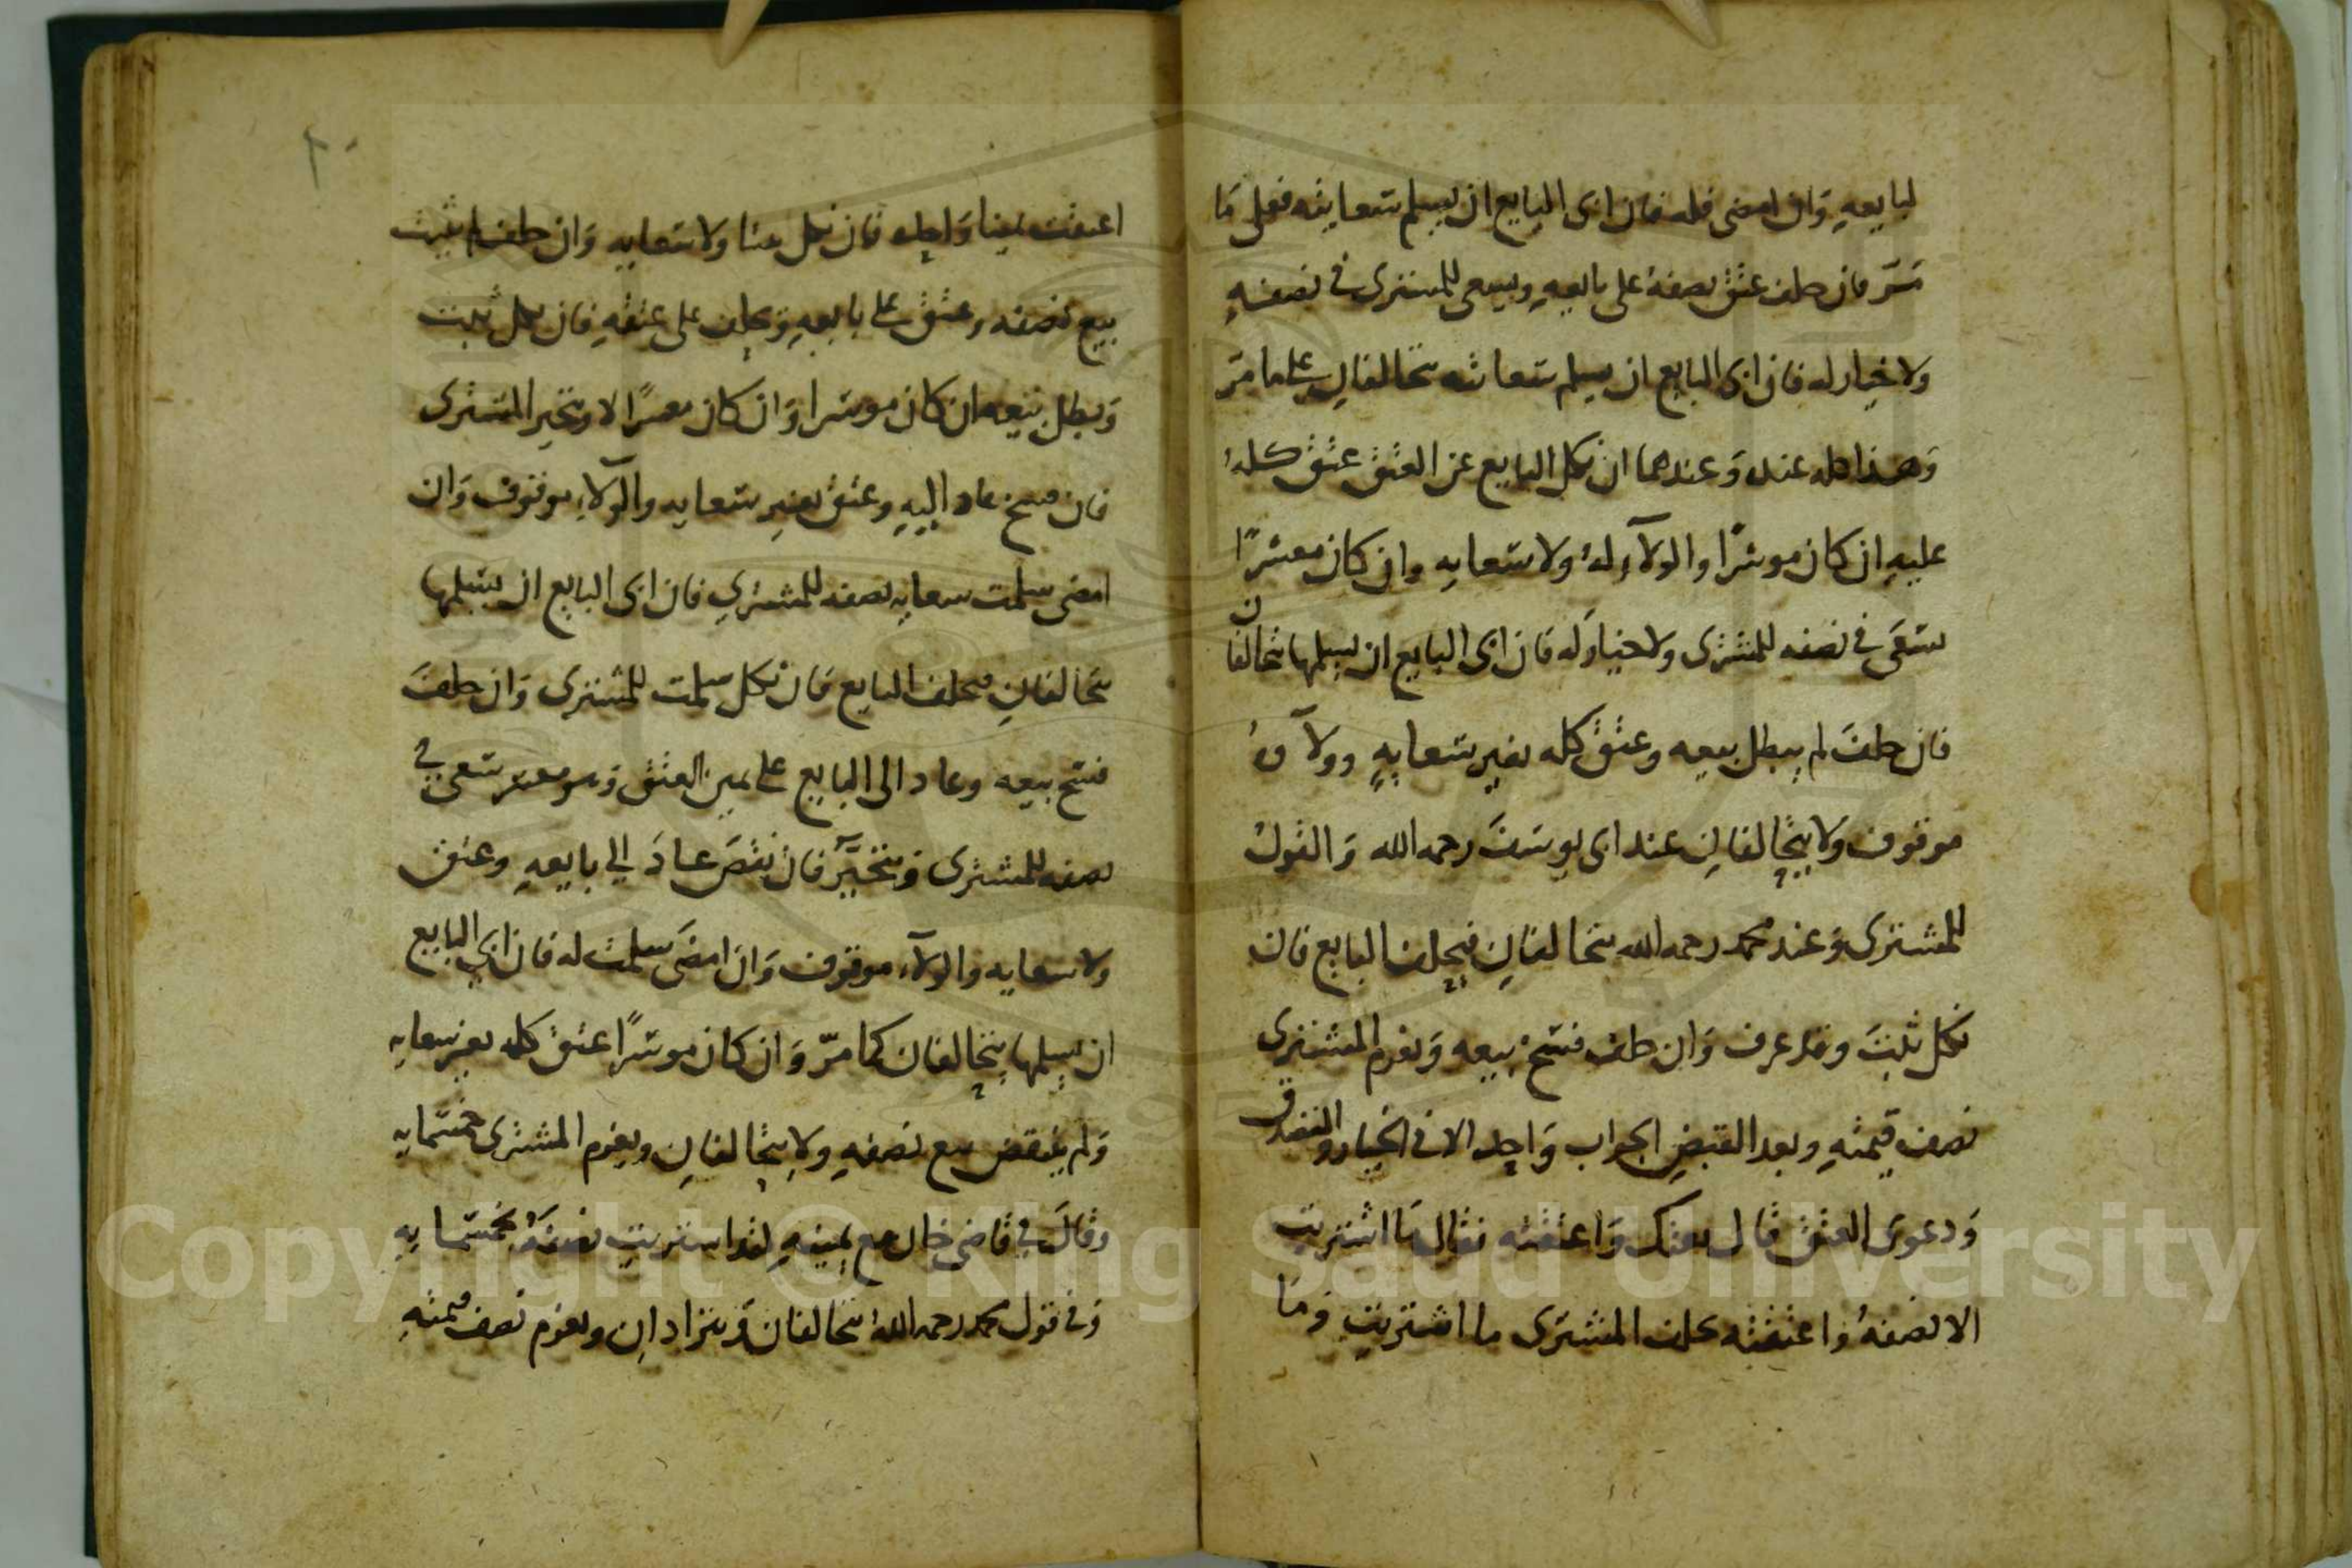 لبايعهِ وَان امضى فله فان ابى البايع ان يسلم سعايته فعلى مَا
مَرَّ فان حلف عتق نصفهُ على بايعهِ ويسعى للمشترى فى نصفهِ
ولا خيار له فان ابى البايع ان يسلم سعايته يتحالفانِ على ما مرّ
وَهذا كله عنده وَعندهما ان نكل البايع عن العتق عتق كله
عليهِ ان كان موسرًا والولآء لهُ ولا سعايه وان كان معسرًا
سَعَى فى نصفه للمشترى ولا خيار له فان ابى البايع ان يسلمها يتحالفان
فان حلفَ لم يبطل بيعه وعتق كله بغير سعايهٍ وولآؤهُ
موقوف ولا يتحالفانِ عند ابى يوسَفَ رحمه الله وَالقولُ
للمشترى وَعند محمد رحمه الله يتحالفانِ فيحلف البايع فان
نكل ثبتَ وقد عرف وَان حلف فسخ بيعه وَيغرم المشترى
نصف قيمتهِ وبعد القبضِ الجواب وَاحد الا فى الخيار والتفرق
وَدعوى العتق قال بعتك وَاعتقته فقال مَا اشتريت
الا نصفهُ وَاعتقته يحلف المشترى ما اشتريت وَمَا
اعتقت يمينا وَاحده فان نكل عتقا ولا سعايه وَان حلف لم يثبت
بيع نصفه وعتق على بايعهِ وَيحلف على عتقهِ فان نكل ثبت
وَبطل بيعه ان كان موسرا وَان كان معسرًا لا ويتخير المشترى
فان فسخ عاد اليهِ وعتق بغيرِ سعايه والولآء موقوف وَان
امضى سلمت سعايه نصفه للمشترى فان ابى البايع ان يسلمها
يتحالفانِ فيحلف البايع فان نكل سلمت للمشترى وَان حلفَ
فسخ بيعه وعاد الى البايع على يمين العتق وَهو معسر سَعى فى
نصفه للمشترى وَيتخيَّر فان نقضَ عادَ الى بايعهِ وعتق
ولا سعايه والولآء موقوف وَان امضَى سلمت له فان ابى البايع
ان يسلمها يتحالفان كما مرّ وَان كان موسرًا عتق كله بغير سعايه
وَلم ينتقض بيع نصفهِ ولا يتحالفانِ ويغرم المشترى خمسمايه
وقالَ فى قاضى خان مع يمينهِ لقد اشتريت نصفهُ بخمسمايه
وَفى قول محمد رحمه الله يتحالفان وَيترادان ويغرم نصف قيمتهِ